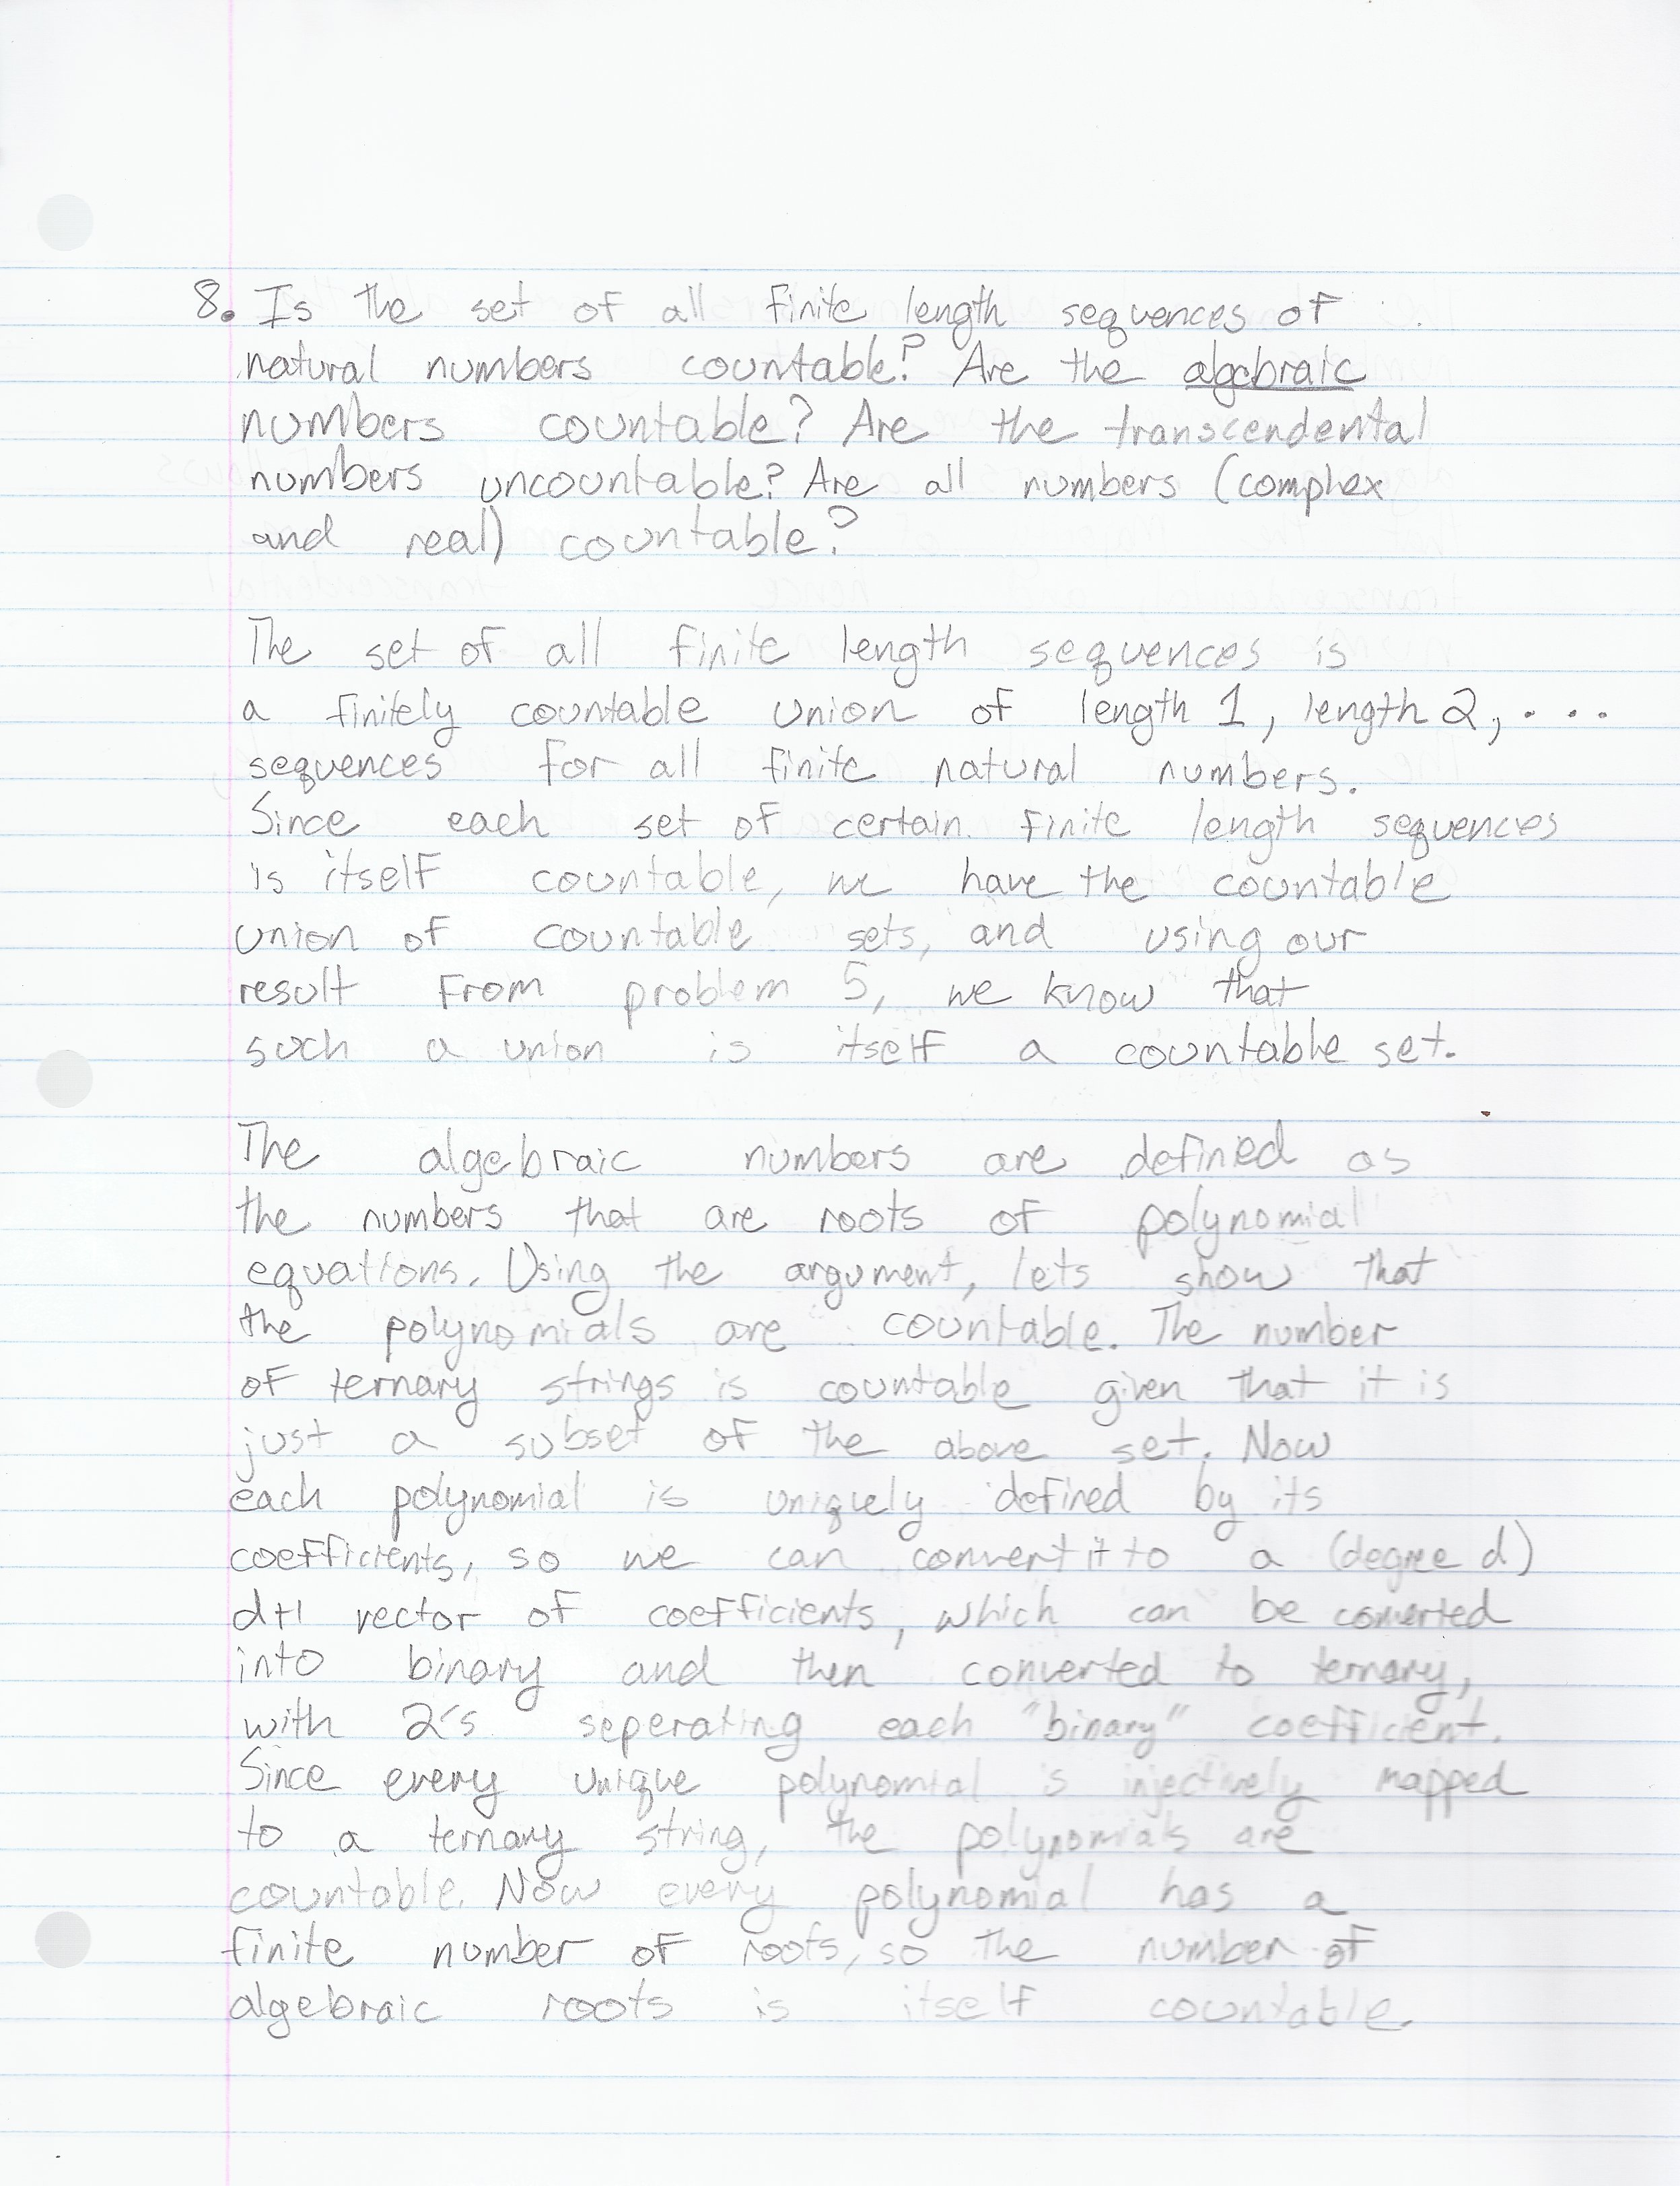 8. Is the set of all finite length sequences of
natural numbers countable? Are the algebraic
numbers countable? Are the transcendental
numbers uncountable? Are all numbers (complex
and real) countable?
The set of all finite length sequences is
a finitely countable union of length 1, length 2, ....
sequences for all finite natural numbers.
Since each set of certain finite length sequences
is itself countable, we have the countable
union of countable sets, and using our
result from problem 5, we know that
such a union is itself a countable set.
The algebraic numbers are defined as
the numbers that are roots of polynomial
equations. Using the argument, lets show that
the polynomials are countable. The number
of ternary strings is countable given that it is
just a subset of the above set. Now
each polynomial is uniquely defined by its
coefficients, so we can convert it to a (degree d)
d+1 vector of coefficients, which can be converted
into binary and then converted to ternary,
with 2's seperating each "binary" coefficient.
Since every unique polynomial is injectively mapped
to a ternary string, the polynomials are
countable. Now every polynomial has a
finite number of roots, so the number of
algebraic roots is itself countable.